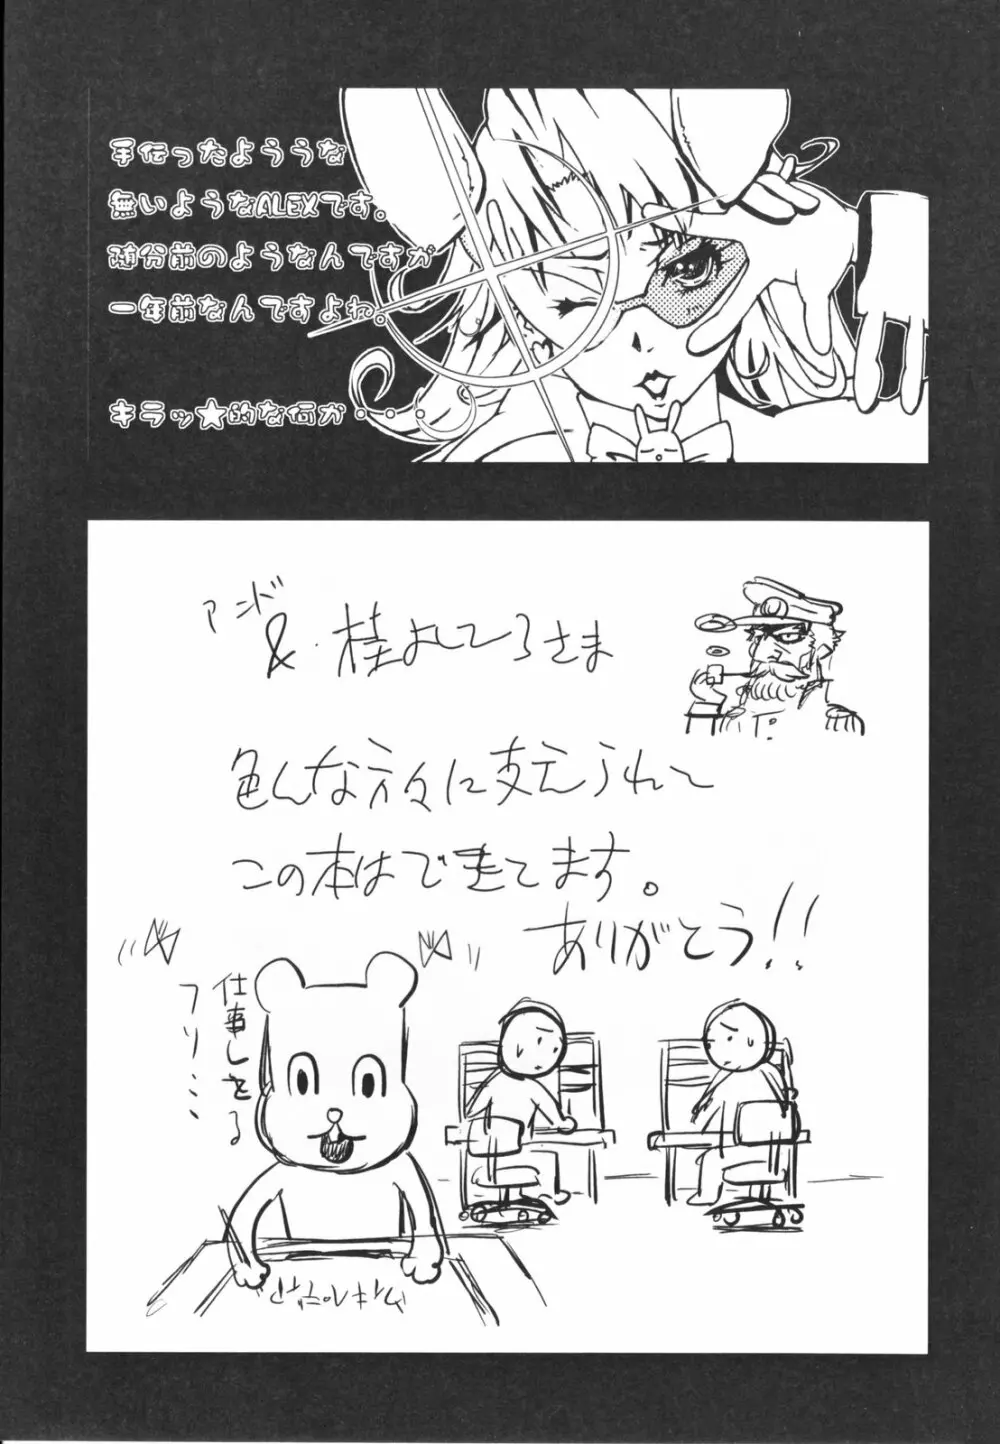 手伝ったようような
無いようなALEXです。
随分前のようなんですが
一年前なんですよね。
キラッ★的な何か・・・。
アンド
&・桂よしひろさま
色んな方々に支えられて
この本はできてます。
ありがとう!!
仕事してる
フリ・・・